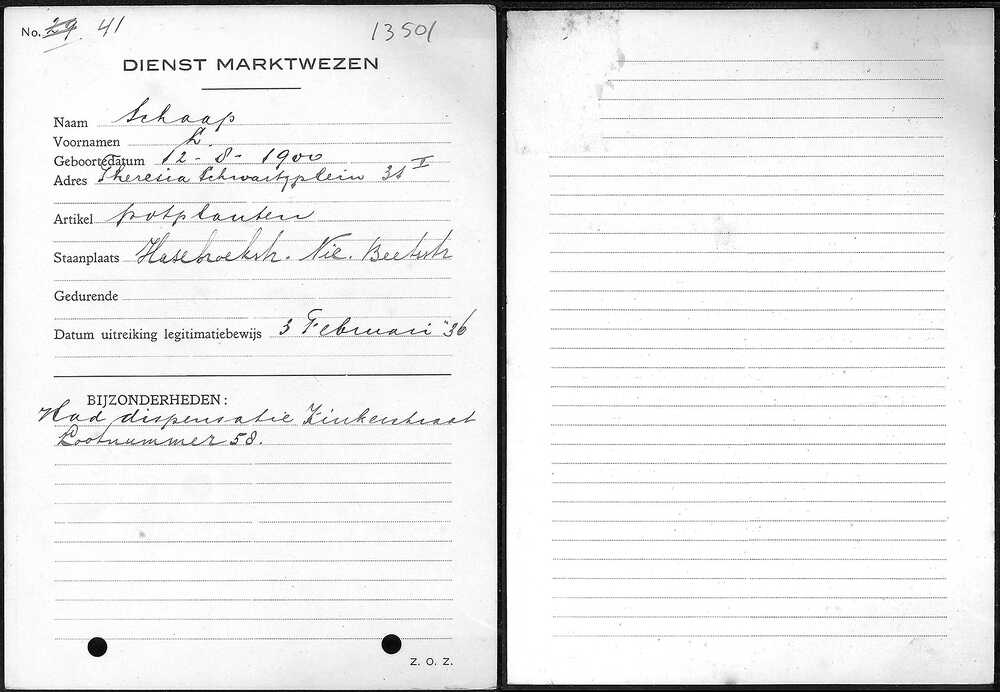 No. 29. 41 13501
DIENST MARKTWEZEN
Naam Schaap
Voornamen L.
Geboortedatum 12-8-1900
Adres Theresia Schwartzplein 31 I
Artikel potplanten
Staanplaats Hasebroekstr. Nic. Beetsstr
Gedurende
Datum uitreiking legitimatiebewijs 3 Februari '36
BIJZONDERHEDEN:
Had dispensatie Kinkerstraat
Lootnummer 58.
Z. O. Z.